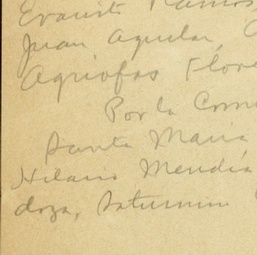 Evaristo Ramos
Juan Aguilar,
Agriofas Flore
Por la Comi
Santa Maria
Hilario Mendia
doza, Saturnino